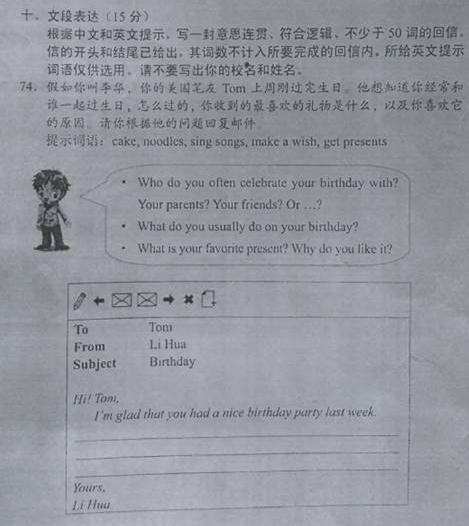 十、文段表达（15 分）
根据中文和英文提示，写一封意思连贯、符合逻辑、不少于 50 词的回信。
信的开头和结尾已给出，其词数不计入所要完成的回信内。所给英文提示
词语仅供选用。请不要写出你的校名和姓名。
74. 假如你叫李华，你的美国笔友 Tom 上周刚过完生日。他想知道你经常和
谁一起过生日，怎么过的，你收到的最喜欢的礼物是什么，以及你喜欢它
的原因。请你根据他的问题回复邮件。
提示词语：cake, noodles, sing songs, make a wish, get presents
• Who do you often celebrate your birthday with?
Your parents? Your friends? Or …?
• What do you usually do on your birthday?
• What is your favorite present? Why do you like it?
To Tom
From Li Hua
Subject Birthday
Hi! Tom,
I'm glad that you had a nice birthday party last week.
Yours,
Li Hua